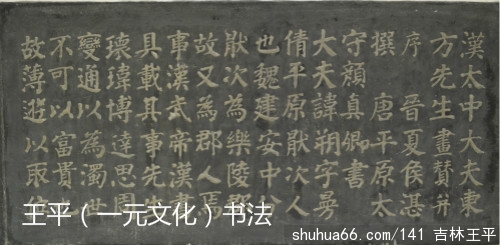 漢太中大夫東
方先生畫贊并
序 晉夏侯湛
撰 唐平原太
守顏真卿書
大夫諱朔字曼
倩平原猒次人
也魏建安中分
猒次為樂陵郡
故又為郡人焉
事漢武帝漢
具載其事先
瓌瑋博達思
變通以為濁世
不可以富貴
故薄遊以取
王平（一元文化）书法
shuhua66.com/141 吉林王平